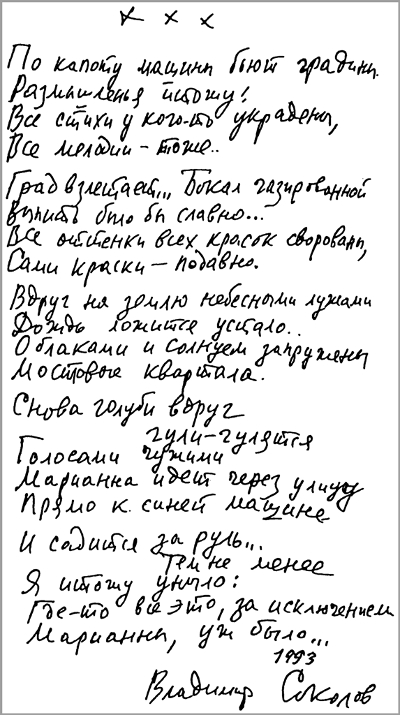 х х х
По капоту машины бьют градины.
Размышленья итожу!
Все стихи у кого-то украдены,
Все мелодии – тоже..
Град взлетает... Бокал газированной
Выпить было бы славно...
Все оттенки всех красок сворованы,
Сами краски – подавно.
Вдруг на землю небесными лужами
Дождь ложится устало..
Облаками и солнцем запружены
Мостовые квартала.
Снова голуби вдруг
гули-гулятся
Голосами чужими
Марианна идет через улицу
Прямо к синей машине
И садится за руль...
Тем не менее
Я итожу уныло:
Где-то все это, за исключением
Марианны, уж было...
1993
Владимир Соколов